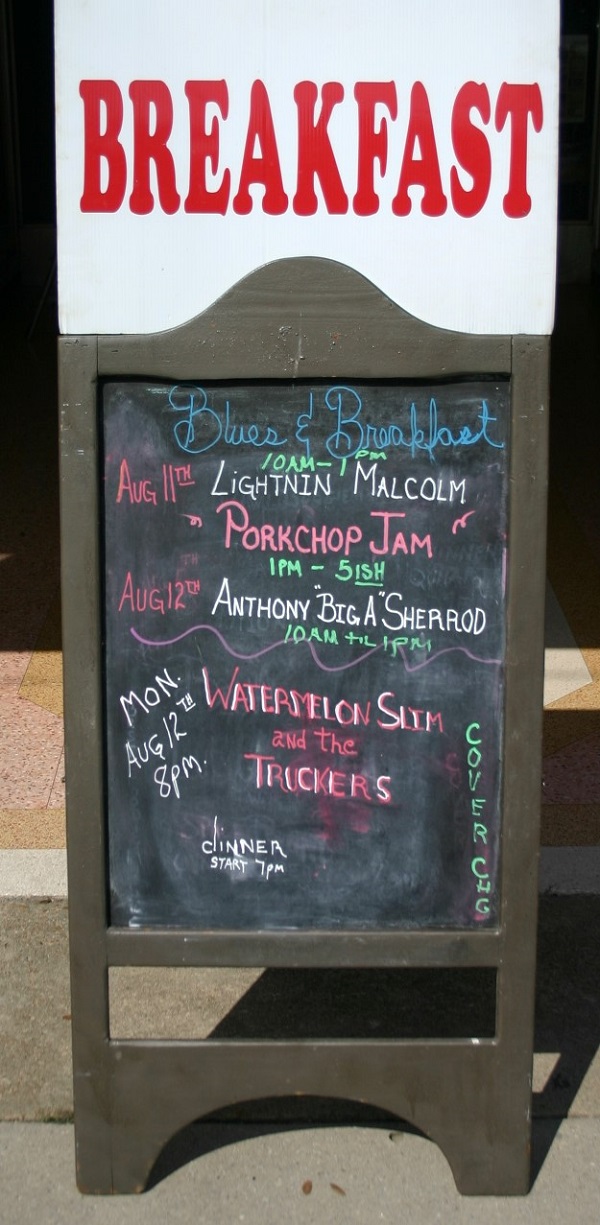 BREAKFAST
Blues & Breakfast
10AM-1PM
AUG 11TH LIGHTNIN MALCOLM
PORKCHOP JAM
1PM - 5ISH
AUG 12TH ANTHONY "BIG A" SHERROD
10AM til 1PM
MON. AUG 12TH 8PM.
WATERMELON SLIM
and the
TRUCKERS
COVER CHG
dINNER
START 7pm